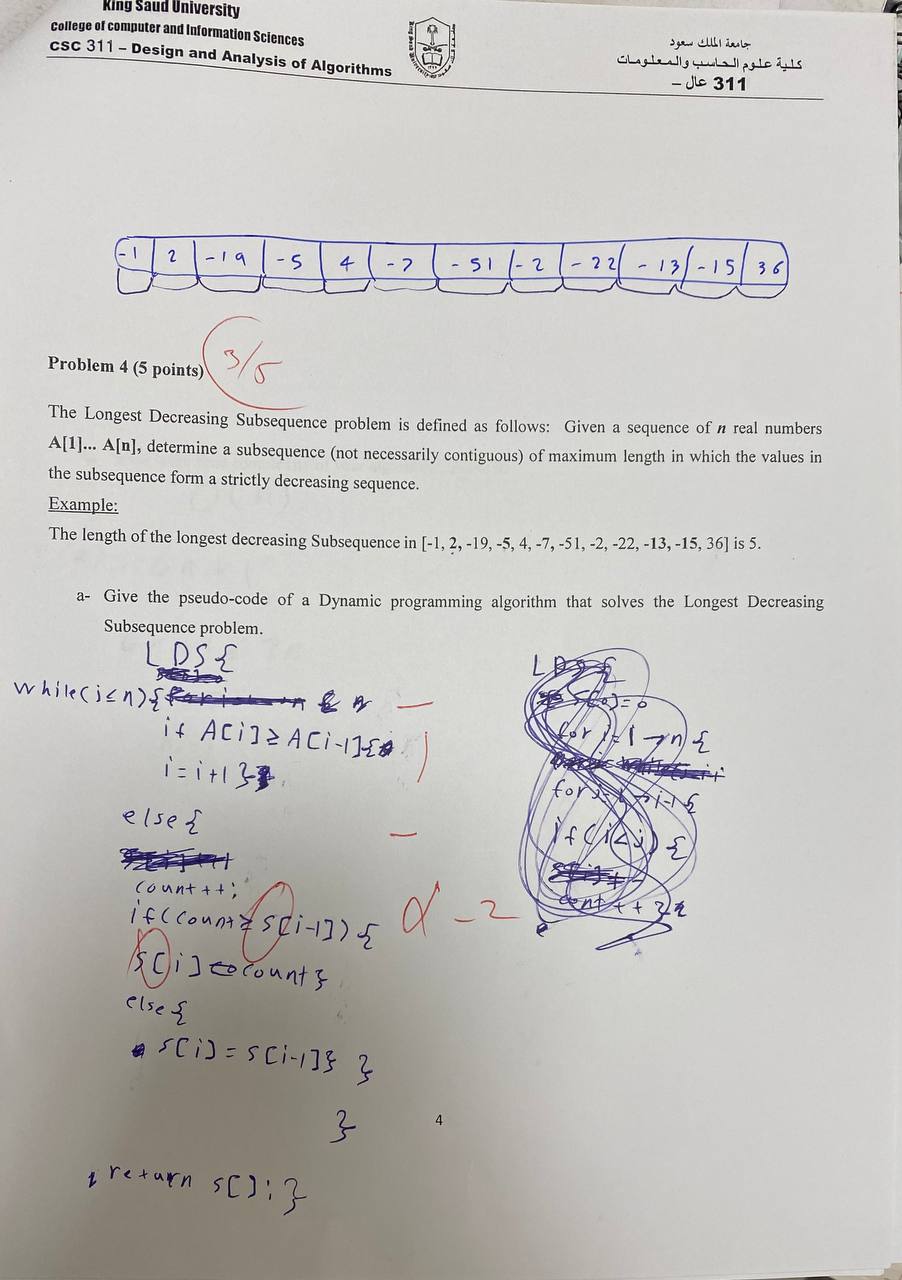 King Saud University
College of computer and Information Sciences
CSC 311 – Design and Analysis of Algorithms
جامعة الملك سعود
كلية علوم الحاسب والمعلومات
311 عال –
-1 2 -19 -5 4 -7 -51 -2 -22 -13 -15 36
Problem 4 (5 points)
3/5
The Longest Decreasing Subsequence problem is defined as follows: Given a sequence of n real numbers
A[1]... A[n], determine a subsequence (not necessarily contiguous) of maximum length in which the values in
the subsequence form a strictly decreasing sequence.
Example:
The length of the longest decreasing Subsequence in [-1, 2, -19, -5, 4, -7, -51, -2, -22, -13, -15, 36] is 5.
a- Give the pseudo-code of a Dynamic programming algorithm that solves the Longest Decreasing
Subsequence problem.
LDS{
while(i≤n){
if A[i]≥A[i-1]{
i=i+1}
else{
count++;
if(count≥S[i-1]){
S[i] count}
else{
S[i]=S[i-1]} }
}
return S[];}
-2
LDS{
S[0]=0
for i=1→n{
for j= →i-1{
if(i<j) {
++}
4